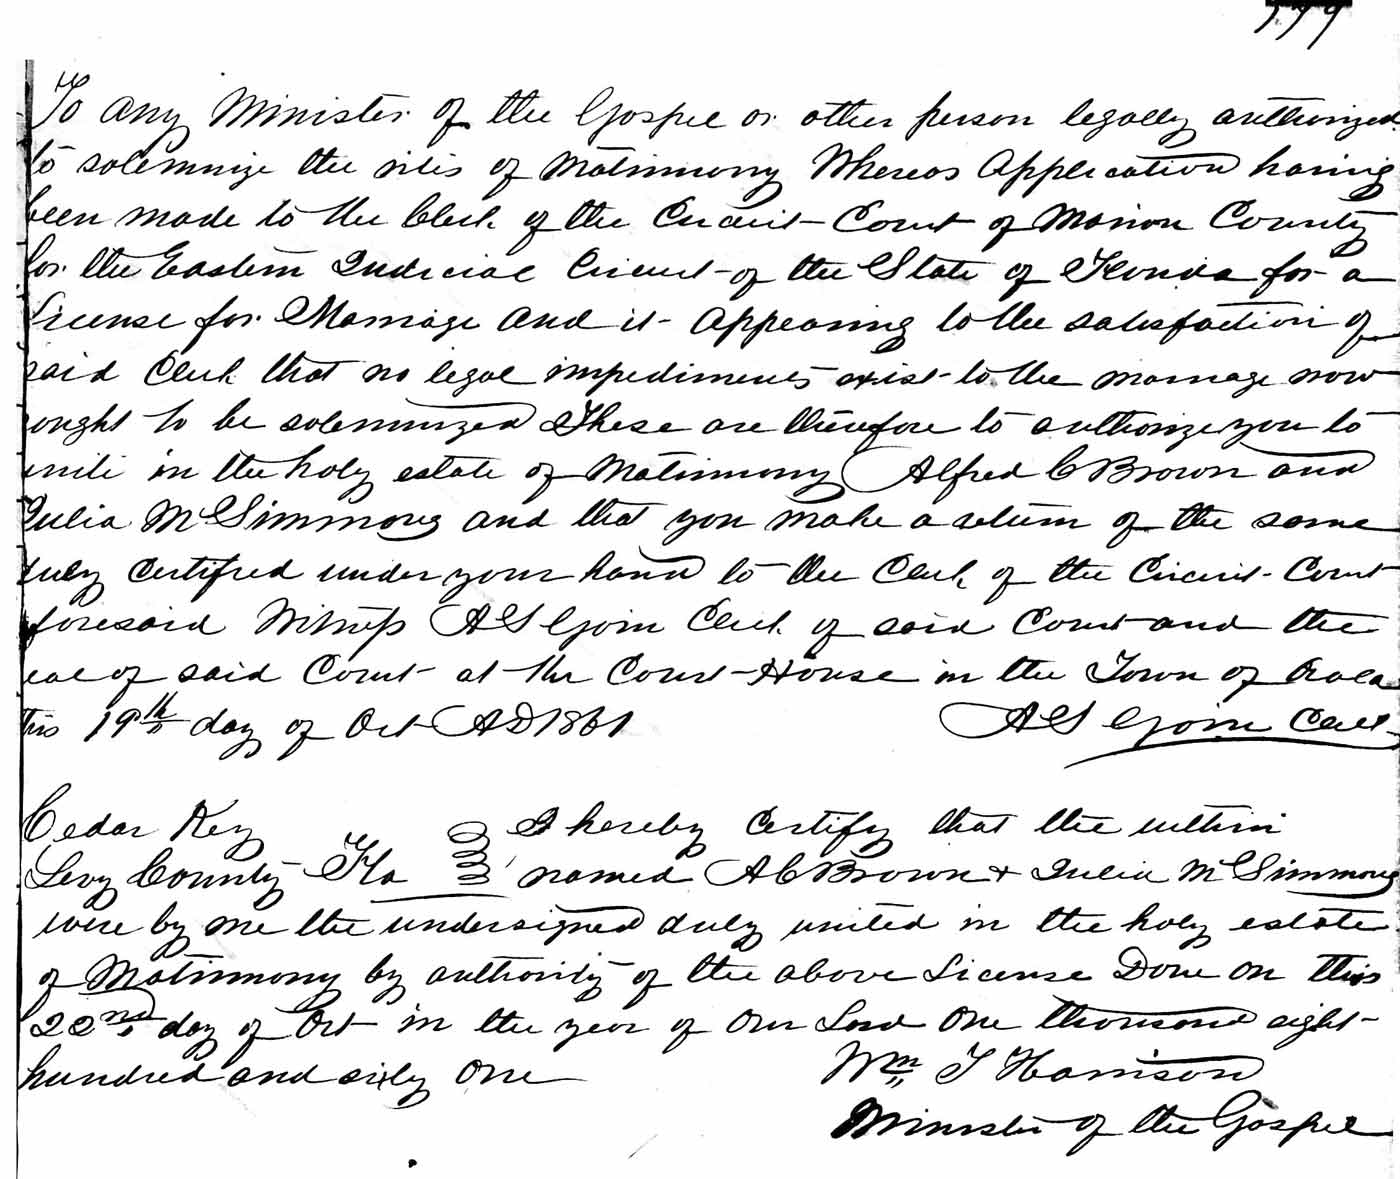 To any Minister of the Gospel or other person legally authorized
to solemnize the rites of Matrimony Whereas Application having
been made to the Clerk of the Circuit Court of Marion County
for the Eastern Judicial Circuit of the State of Florida for a
License for Marriage and it appearing to the satisfaction of
said Clerk that no legal impediments exist to the marriage now
ought to be solemnized These are therefore to authorize you to
unite in the holy estate of Matrimony Alfred C Brown and
Julia M Simmons and that you make a return of the same
duly certified under your hand to the Clerk of the Circuit Court
foresaid Witness A S Goin Clerk of said Court and the
eal of said Court at the Court House in the Town of Ocala
this 19th day of Oct AD 1861
A S Goin Clerk
Cedar Key
Levy County Fla
I hereby Certify that the within
named A C Brown + Julia M Simmons
were by me the undersigned duly united in the holy estate
of Matrimony by authority of the above License Done on this
22nd day of Oct in the year of Our Lord One thousand eight
hundred and sixty One
Wm T Harrison
Minister of the Gospel